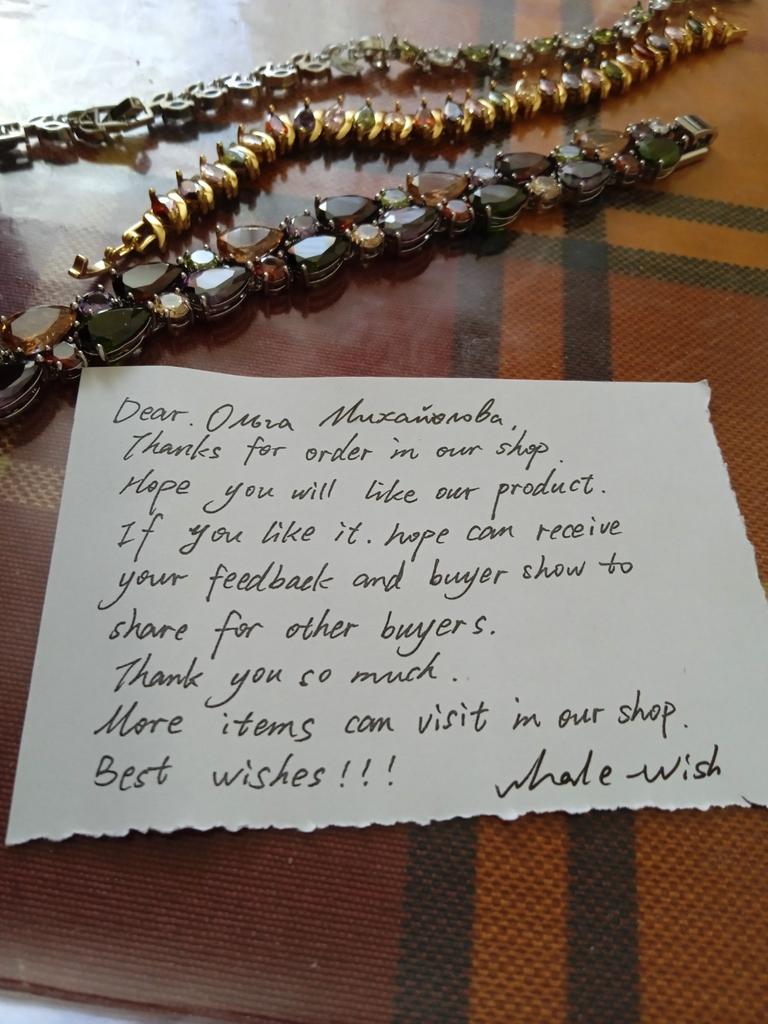 Dear. Ольга Михайолова,
Thanks for order in our shop.
Hope you will like our product.
If you like it. hope can receive
your feedback and buyer show to
share for other buyers.
Thank you so much.
More items can visit in our shop.
Best wishes!!! whale wish